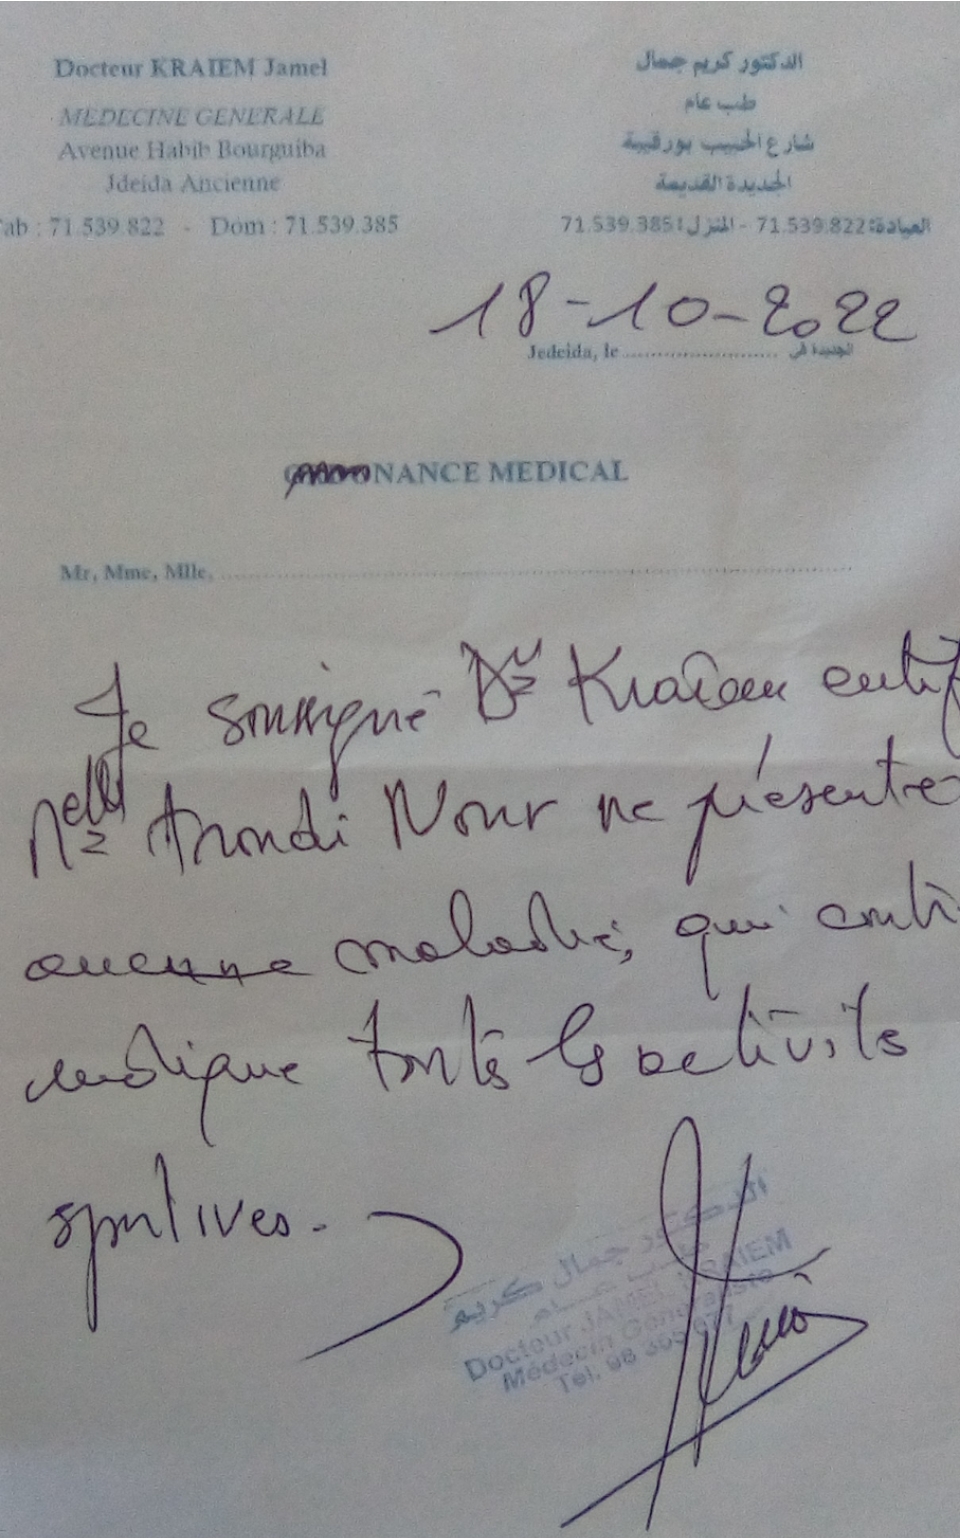 Docteur KRAIEM Jamel
MEDECINE GENERALE
Avenue Habib Bourguiba
Jdeida Ancienne
ab : 71.539.822 - Dom : 71.539.385
الدكتور كريم جمال
طب عام
شارع الحبيب بورقيبة
الجديدة القديمة
العيادة: 71.539.822 - المنزل: 71.539.385
18-10-2022
Jedeida, le ........................ الجديدة في
NANCE MEDICAL
Mr, Mme, Mlle, ................................................
Je soussigné Dr Kraiem certif
Melle Nour ne présente
aucune maladie, qui contr
indique toutes les activités
sportives.
الدكتور جمال كريم
طب عام
Docteur JAMEL KRAIEM
Médecin Généraliste
Tél. 98